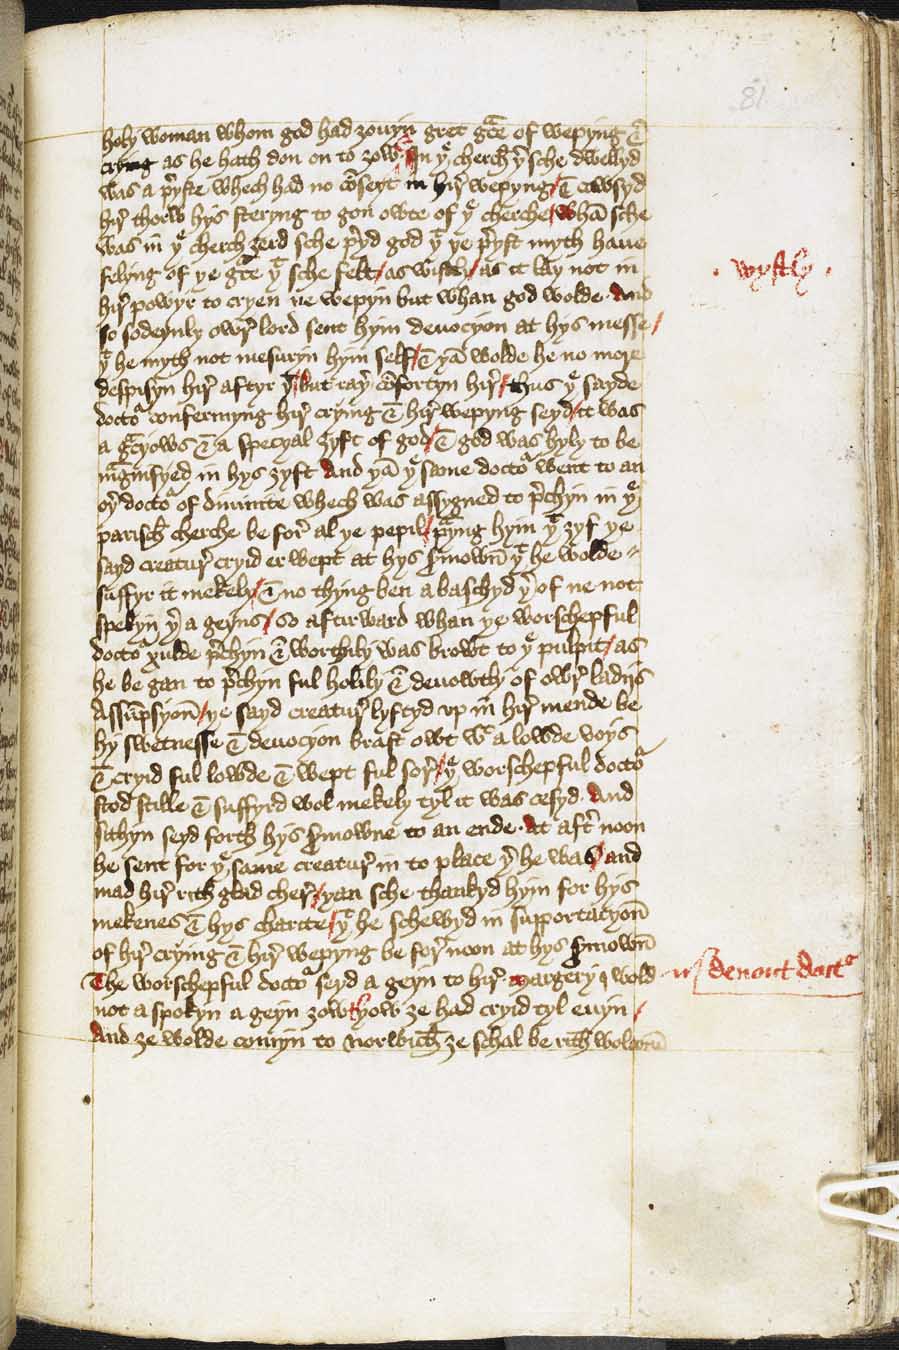 81
holy woman whom god had zouyn gret gᵃce of wepyng &
crying as he hath don on to zow. In yᵉ cherch yͤr sche dwellyd
was a pᵉyste whech had no cōseyt in hir wepyng / & cawsyd
hir thorw hys steryng to gon owte of yᵉ cherche / whā sche
was in yᵉ cherch zerd sche pᵉyd god yᵗ ye pᵉyst myth haue
felyng of ye gᵃce yᵗ sche felt / as wistly / as it lay not in
. wystly .
hir powyr to cryen ne wepyn but whan god wolde. And
so sodeynly owr lord sent hym deuocyon at hys messe /
yᵗ he myth not mesuryn hym self / & yā wolde he no more
despisyn hir aftyr yͤr / but rayͤr cōfortyn hir / thus yᵉ sayde
doctoͬ confermyng hir crying & hir wepyng seyd / it was
a gᵃcyows & a specyal zyft of god / & god was hyly to be
magnifyed in hys zyft And yā yᵉ same doctoͬ went to an
oyͤr doctoͬ of diuinite whech was assygned to pᵉchyn in yᵉ
parisch cherche be for al ye pepil / pᵃyng hym yᵗ zyf ye
sayd creatur cryid er wept at hys sᵉmown yᵗ he wolde
suffyr it mekely / & no thyng ben a baschyd yͤr of ne not
spekyn yͤr a geyns / So aftirward whan ye worschepful
doctoͬ xulde pᵉchyn & worthily was browt to yᵉ pulpit / as
he be gan to pᵉchyn ful holily & deuowtly of owr ladijs
Assūpsyon / ye sayd creatur lyftyd vp in hir mende be
hy swetnesse & deuocyon brast owt wᵗ a lowde voys
& cryid ful lowde & wept ful sor / yᵉ worschepful doctoͬ
stod stille & suffyrd wol mekely tyl it was cesyd. And
sithyn seyd forth hys sᵉmowne to an ende. At aftͤr noon
he sent for yᵉ same creatur in to place yͤr he was / and
mad hir rith glad cher / yan sche thankyd hym for hys
mekenes & hys charite / yᵗ he schewyd in supportacyon
of hir crying & hir wepyng be for noon at hys sᵉmown
The worschepful doctoͬ seyd a geyn to hir. Margery I wold
deuout doctͬ
not a spokyn a geyn zow thow ze had cryid tyl euyn /
And ze wolde comyn to norwich ze schal be rith wolcom